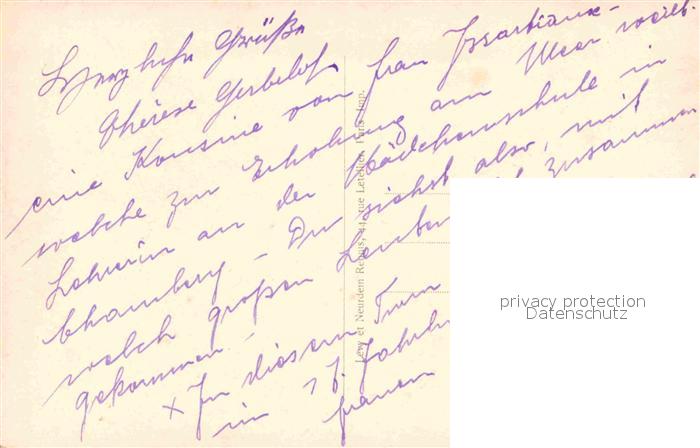 Herzliche Grüße
Thérèse Gerbelot
eine Kousine von Frau
welche zur Erholung am Meer weilt.
Lehrerin an der Mädchenschule in
Chambery - Du siehst also, mit
welch großen zusammen
gekommen -
x In diesem Turm
im 17. Jahrh
frauen
Levy et Neurdein Réunis, 44, rue Letellier, Paris - Imp.
privacy protection
Datenschutz